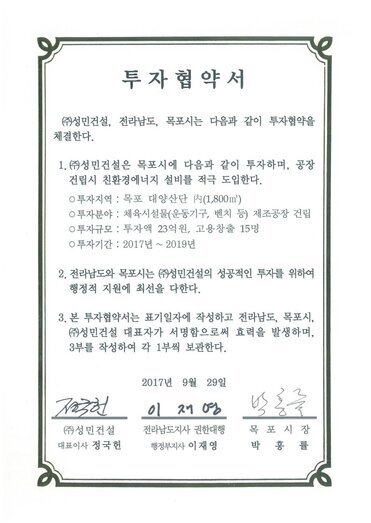 투자협약서
㈜성민건설, 전라남도, 목포시는 다음과 같이 투자협약을
체결한다.
1. ㈜성민건설은 목포시에 다음과 같이 투자하며, 공장
건립시 친환경에너지 설비를 적극 도입한다.
○투자지역 : 목포 대양산단 內(1,800㎡)
○투자분야 : 체육시설물(운동기구, 벤치 등) 제조공장 건립
○투자규모 : 투자액 23억원, 고용창출 15명
○투자기간 : 2017년 ~ 2019년
2. 전라남도와 목포시는 ㈜성민건설의 성공적인 투자를 위하여
행정적 지원에 최선을 다한다.
3. 본 투자협약서는 표기일자에 작성하고 전라남도, 목포시,
㈜성민건설 대표자가 서명함으로써 효력을 발생하며,
3부를 작성하여 각 1부씩 보관한다.
2017년 9월 29일
정국헌 이재영 박홍률
㈜성민건설 전라남도지사 권한대행 목포시장
대표이사 정국헌 행정부지사 이재영 박홍률